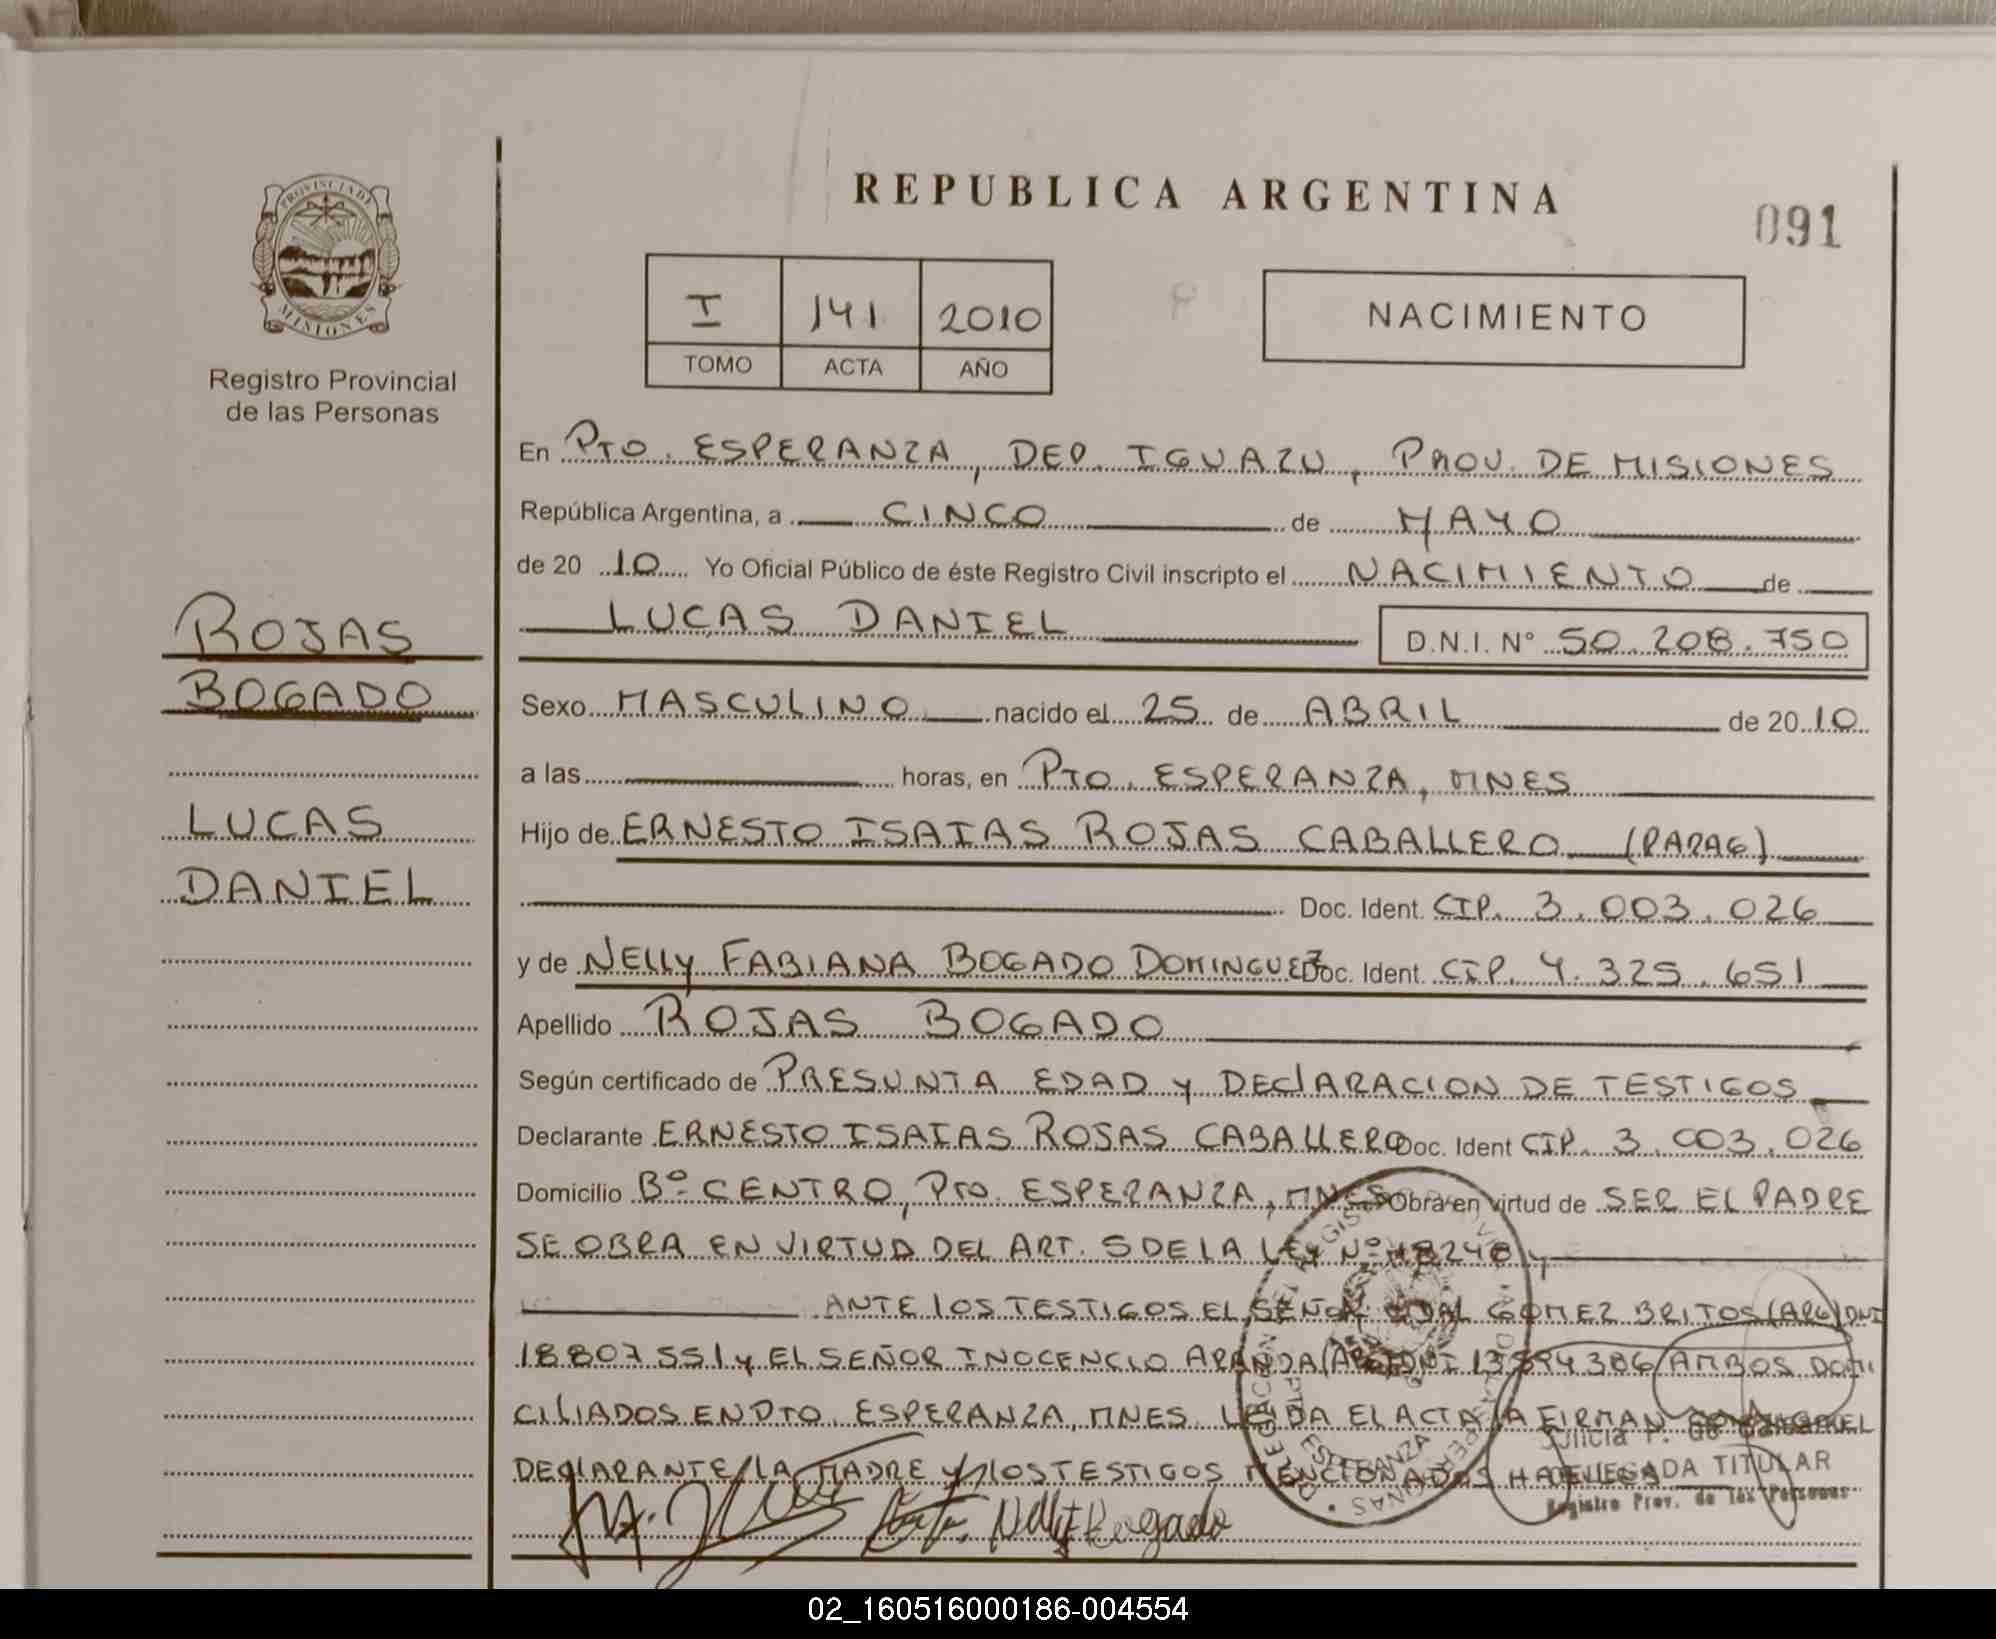 REPUBLICA ARGENTINA
091
PROVINCIA DE
MISIONES
Registro Provincial
de las Personas
I 141 2010
TOMO ACTA AÑO
NACIMIENTO
ROJAS
BOGADO
LUCAS
DANIEL
En PTO. ESPERANZA, DEP. IGUAZU, PROV. DE MISIONES
República Argentina, a CINCO de MAYO
de 20 10 Yo Oficial Público de éste Registro Civil inscripto el NACIMIENTO de
LUCAS DANIEL D.N.I. Nº 50.208.750
Sexo MASCULINO nacido el 25 de ABRIL de 20 10
a las horas, en PTO. ESPERANZA, MNES
Hijo de ERNESTO ISAIAS ROJAS CABALLERO (PARAG)
Doc. Ident. CIP. 3.003.026
y de NELLY FABIANA BOGADO DOMINGUEZ Doc. Ident. CIP. 4.325.651
Apellido ROJAS BOGADO
Según certificado de PRESUNTA EDAD Y DECLARACION DE TESTIGOS
Declarante ERNESTO ISAIAS ROJAS CABALLERO Doc. Ident CIP. 3.003.026
Domicilio Bº CENTRO, PTO. ESPERANZA, MNES Obra en virtud de SER EL PADRE
SE OBRA EN VIRTUD DEL ART. 5 DE LA LEY Nº 18248 y
ANTE LOS TESTIGOS EL SEÑOR GOMEZ BRITOS (ARG) DNI
18807551 y EL SEÑOR INOCENCIO ARANDA (ARG) DNI AMBOS DOMI
CILIADOS EN PTO. ESPERANZA, MNES. LEIDA EL ACTA LA FIRMAN EL
DECLARANTE, LA MADRE Y LOS TESTIGOS MENCIONADOS
DELEGADA TITULAR
Registro Prov. de las Personas
Nelly F Bogado
02_160516000186-004554